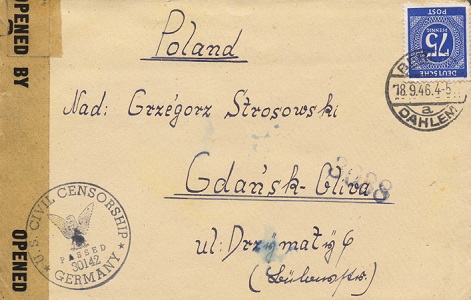 OPENED BY
OPENED
Poland
Nad: Grzégorz Strosowski
Gdańsk-Oliva
ul: Drzymały 6
75
PFENNIG
DEUTSCHE
POST
BER
18.9.46.4-5
a
DAHLEM
U.S. CIVIL CENSORSHIP
PASSED
30142
GERMANY